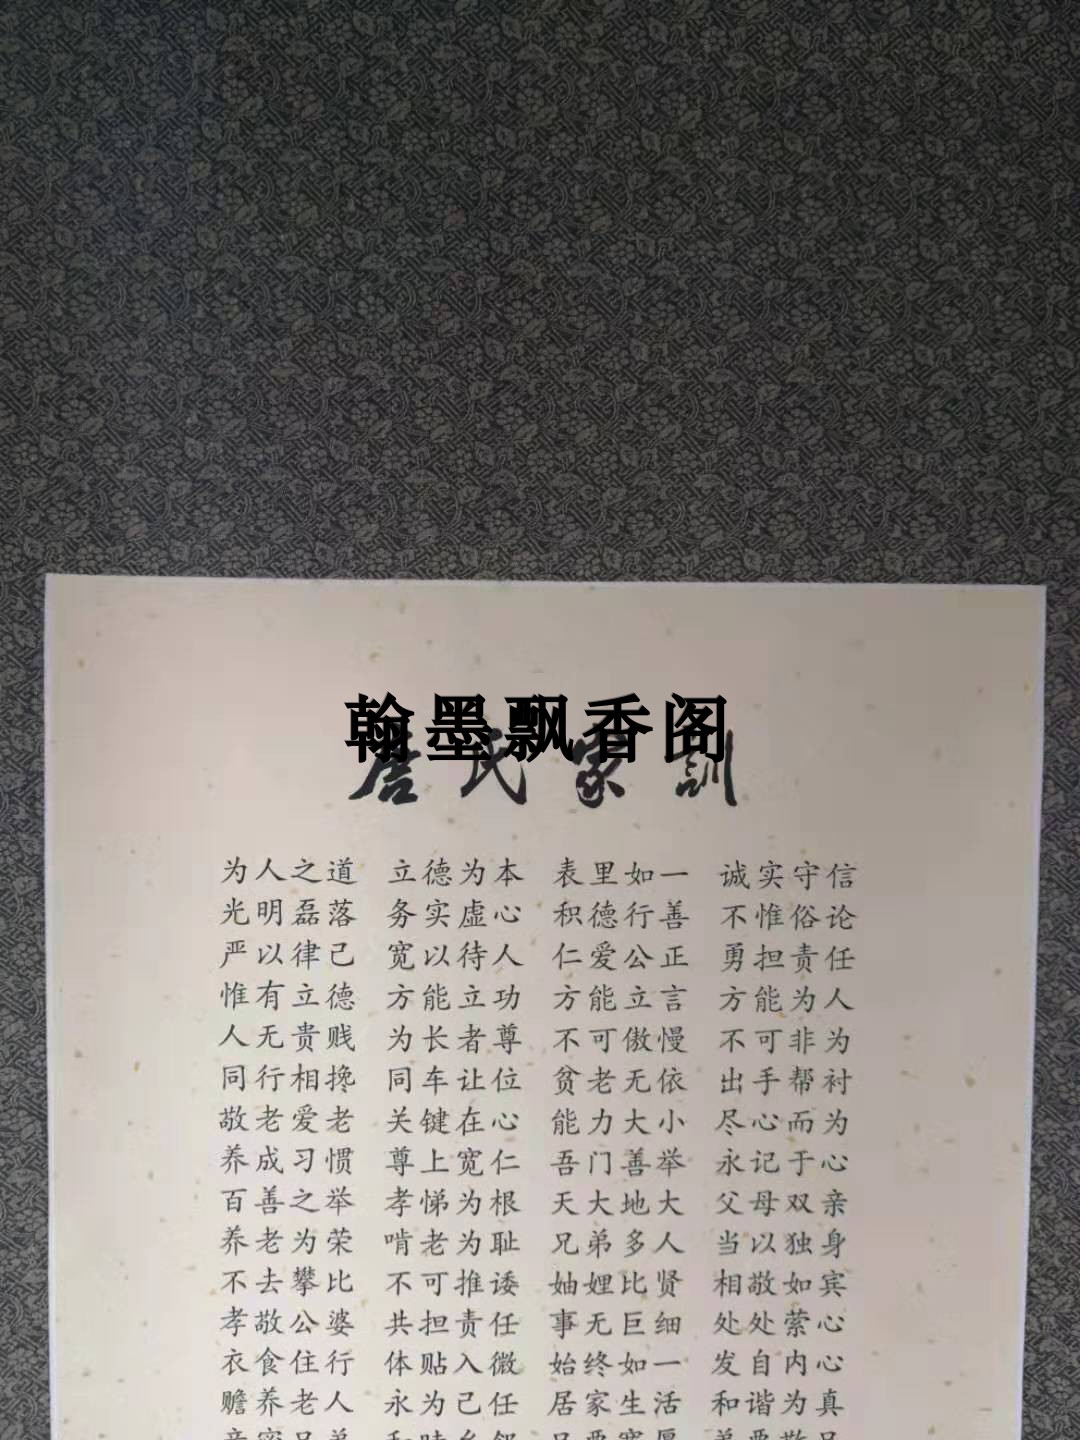 翰墨飘香阁
唐氏家訓
为人之道 立德为本 表里如一 诚实守信
光明磊落 务实虚心 积德行善 不惟俗论
严以律己 宽以待人 仁爱公正 勇担责任
惟有立德 方能立功 方能立言 方能为人
人无贵贱 为长者尊 不可傲慢 不可非为
同行相搀 同车让位 贫老无依 出手帮衬
敬老爱老 关键在心 能力大小 尽心而为
养成习惯 尊上宽仁 吾门善举 永记于心
百善之举 孝悌为根 天大地大 父母双亲
养老为荣 啃老为耻 兄弟多人 当以独身
不去攀比 不可推诿 妯娌比贤 相敬如宾
孝敬公婆 共担责任 事无巨细 处处萦心
衣食住行 体贴入微 始终如一 发自内心
赡养老人 永为己任 居家生活 和谐为真